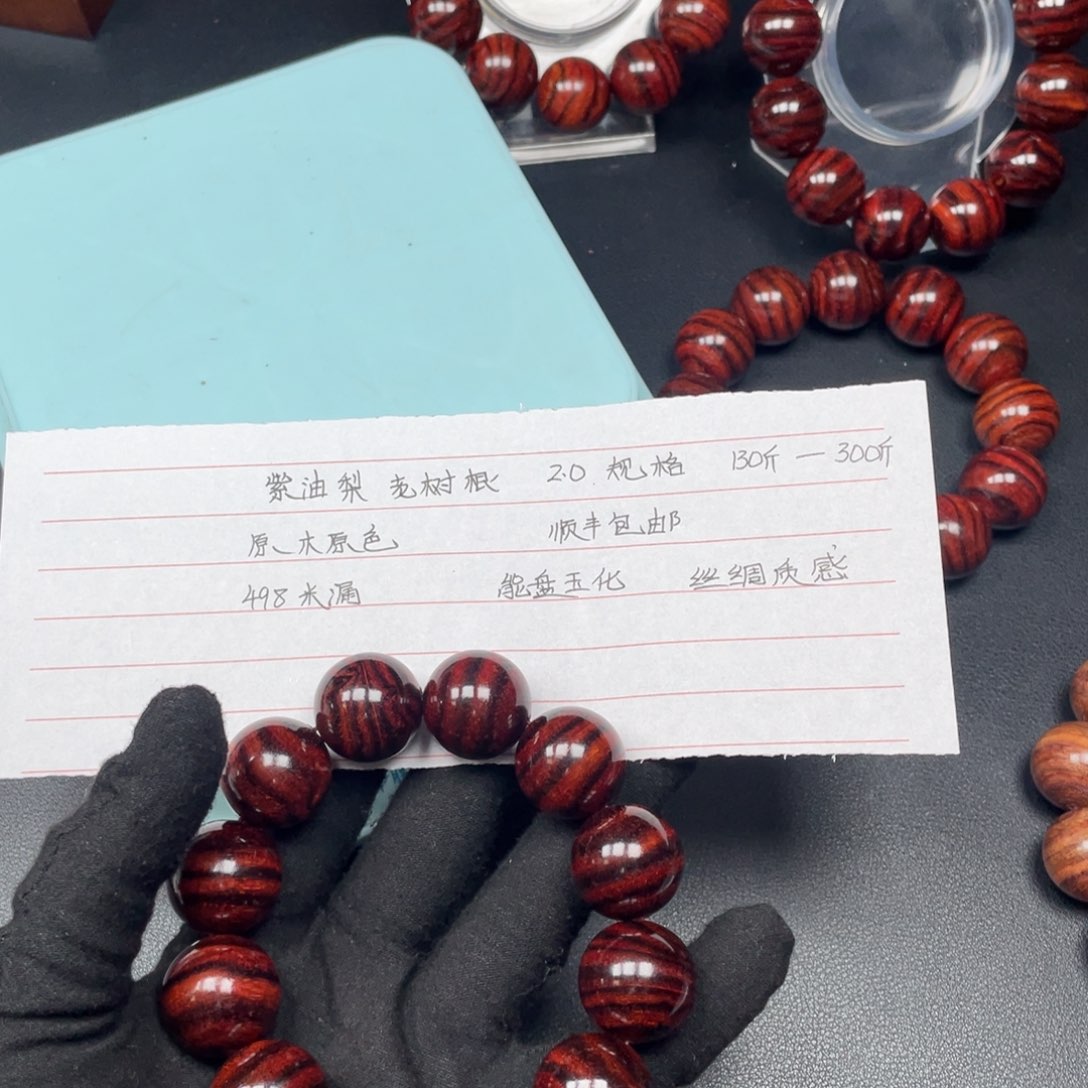 紫油梨 老树根 2.0 规格 130斤 — 300斤
原木原色 顺丰包邮
498米漏 能盘玉化 丝绸质感